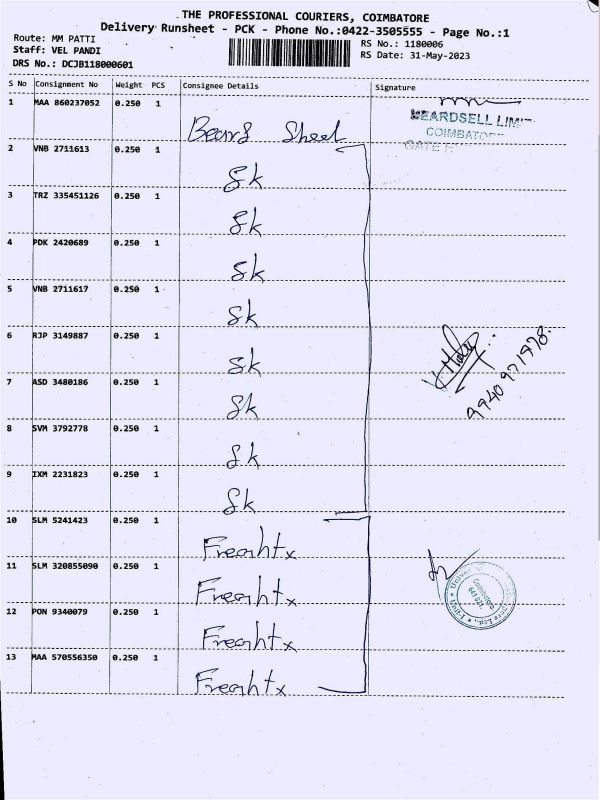 THE PROFESSIONAL COURIERS, COIMBATORE
Delivery Runsheet - PCK - Phone No.:0422-3505555 - Page No.:1
Route: MM PATTI
RS No.: 1180006
Staff: VEL PANDI
RS Date: 31-May-2023
DRS No.: DCJB118000601
S No Consignment No Weight PCS Consignee Details Signature
1 MAA 860237052 0.250 1
BEARDSELL
COIMBATORE
2 VNB 2711613 0.250 1
Sk
3 TRZ 335451126 0.250 1
Sk
4 PDK 2420689 0.250 1
Sk
5 VNB 2711617 0.250 1
Sk
6 RJP 3149887 0.250 1
Sk
7 ASD 3480186 0.250 1
Sk
8 SVM 3792778 0.250 1
Sk
9 IXM 2231823 0.250 1
Sk
10 SLM 5241423 0.250 1
11 SLM 320855090 0.250 1
12 PON 9340079 0.250 1
13 MAA 570556350 0.250 1
Coimbatore
641 021